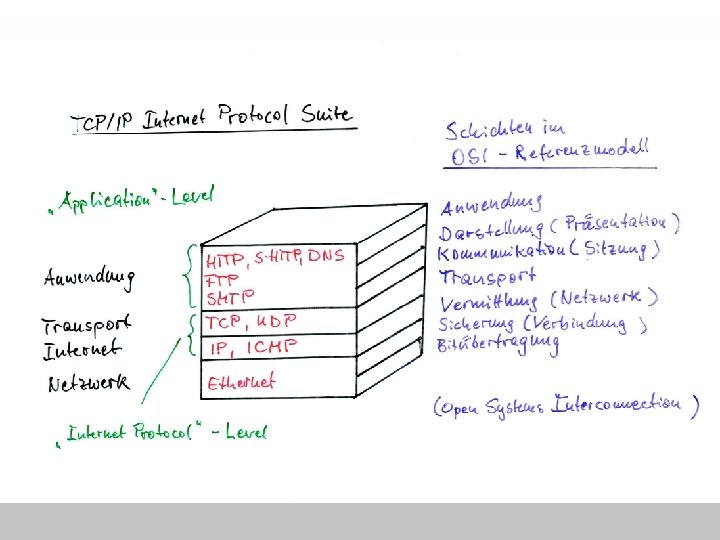 TCP/IP Internet Protocol Suite
Schichten im
OSI - Referenzmodell
"Application"-Level
Anwendung
Transport
Internet
Netzwerk
HTTP, S-HTTP, DNS
FTP
SMTP
TCP, UDP
IP, ICMP
Ethernet
Anwendung
Darstellung (Präsentation)
Kommunikation (Sitzung)
Transport
Vermittlung (Netzwerk)
Sicherung (Verbindung)
Bitübertragung
(Open Systems Interconnection)
"Internet Protocol" - Level